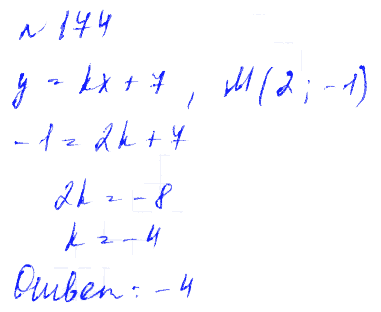 № 174
y = kx + 7, M(2; -1)
-1 = 2k + 7
2k = -8
k = -4
Ответ: -4